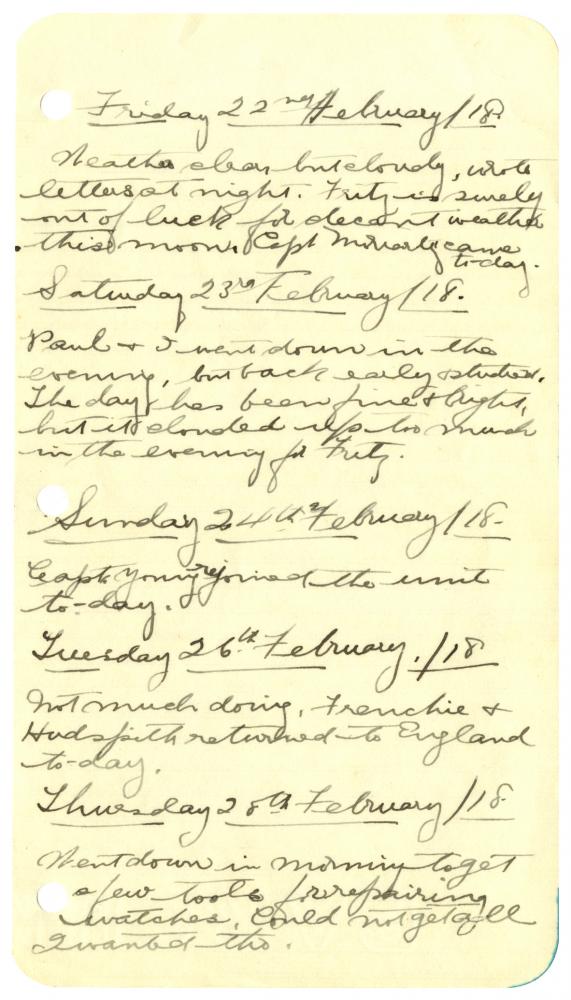 Friday 22nd February/18.
Weather clear but cloudy, wrote
letters at night. Fritz is surely
out of luck for decent weather
this moon. Capt came
to-day.
Saturday 23rd February/18.
Paul & I went down in the
evening, but back early & studied.
The day has been fine & bright,
but it clouded up too much
in the evening for Fritz.
Sunday 24th February/18-
Capt. Young rejoined the unit
to-day.
Tuesday 26th February./18
Not much doing, Frenchie &
Hudspith returned to England
to-day.
Thursday 28th February/18
Went down in morning to get
a few tools for repairing
watches, Could not get all
I wanted tho.